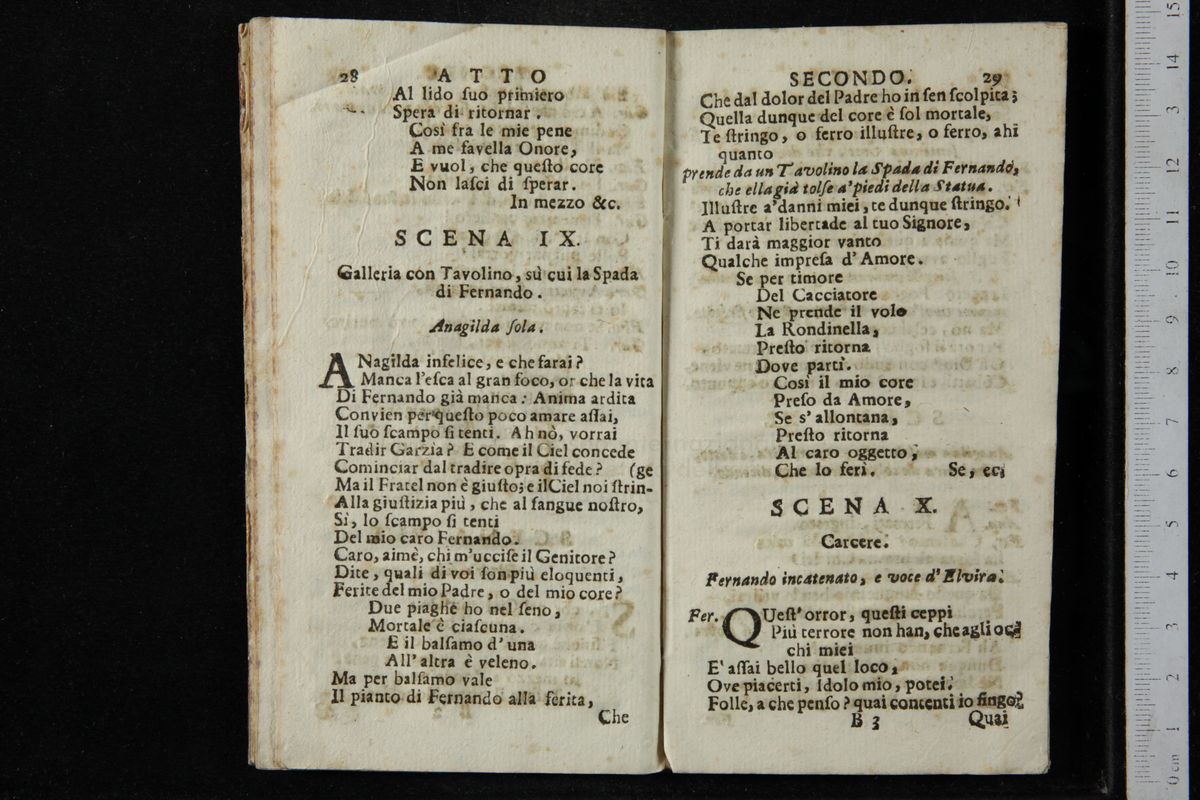 28 ATTO
Al lido ſuo primiero
Spera di ritornar.
Così fra le mie pene
A me favella Onore,
E vuol, che queſto core
Non laſci di ſperar.
In mezzo &c.
SCENA IX.
Galleria con Tavolino, sù cui la Spada
di Fernando.
Anagilda ſola.
ANagilda infelice, e che farai?
Manca l'eſca al gran foco, or che la vita
Di Fernando già manca: Anima ardita
Convien per queſto poco amare aſſai,
Il ſuo ſcampo ſi tenti. Ah nò, vorrai
Tradir Garzìa? E come il Ciel concede
Cominciar dal tradire opra di fede? (ge
Ma il Fratel non è giuſto; e il Ciel noi ſtrin-
Alla giuſtizia più, che al ſangue noſtro,
Sì, lo ſcampo ſi tenti
Del mio caro Fernando.
Caro, aimè, chi m'ucciſe il Genitore?
Dite, quali di voi ſon più eloquenti,
Ferite del mio Padre, o del mio core?
Due piaghe ho nel ſeno,
Mortale è ciaſcuna.
E il balſamo d'una
All'altra è veleno.
Ma per balſamo vale
Il pianto di Fernando alla ferita,
Che
SECONDO. 29
Che dal dolor del Padre ho in ſen ſcolpita;
Quella dunque del core è ſol mortale,
Te ſtringo, o ferro illuſtre, o ferro, ahi
quanto
prende da un Tavolino la Spada di Fernando,
che ella già tolſe a'piedi della Statua.
Illuſtre a'danni miei, te dunque ſtringo.
A portar libertade al tuo Signore,
Ti darà maggior vanto
Qualche impreſa d'Amore.
Se per timore
Del Cacciatore
Ne prende il volo
La Rondinella,
Preſto ritorna
Dove partì.
Così il mio core
Preſo da Amore,
Se s'allontana,
Preſto ritorna
Al caro oggetto,
Che lo ferì. Se, ec.
SCENA X.
Carcere.
Fernando incatenato, e voce d'Elvira.
Fer. QUeſt'orror, queſti ceppi
Più terrore non han, che agli oc-
chi miei
E' aſſai bello quel loco,
Ove piacerti, Idolo mio, potei.
Folle, a che penſo? quai contenti io fingo?
B 3 Quai